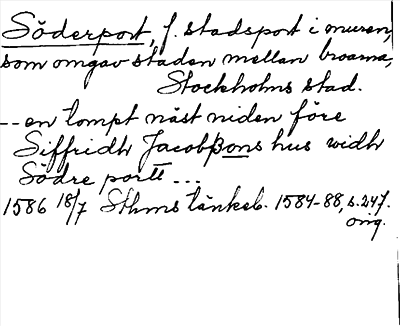 Söderport, f. stadsport i muren,
som omgav staden mellan broarna,
Stockholms stad.
-- en tompt näst niden före
Siffridh Jacobßons hus widh
Södre portt ---
1586 18/7 Sthms tänkeb. 1584-88, s. 247.
orig.